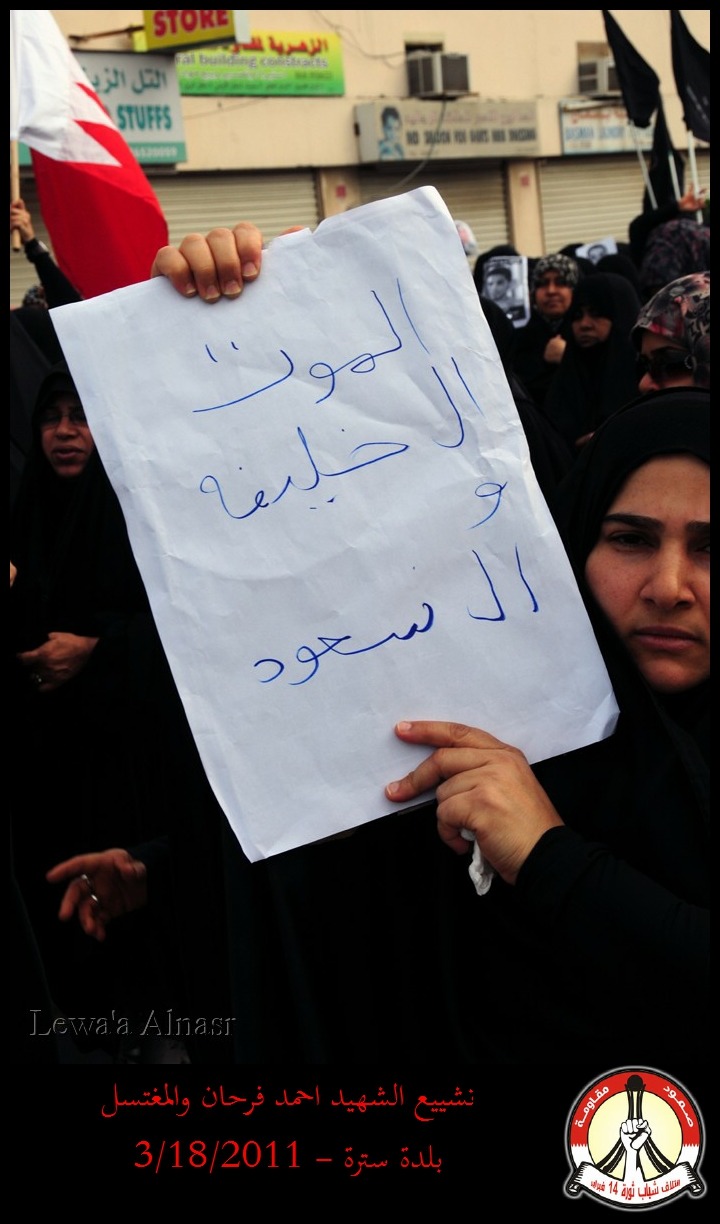 STORE
الزهرية للمقاولات
ral building constracts
التل الزي
STUFFS
الموت
ال خليفه
و
ال سعود
Lewa'a Alnasr
تشييع الشهيد احمد فرحان والمغتسل
بلدة سترة – 3/18/2011
صمود
مقاومة
ائتلاف شباب ثورة 14 فبراير